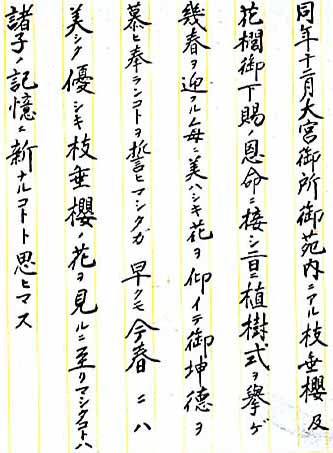 同年十二月大宮御所御苑内ニアル枝垂櫻及
花櫚御下賜ノ恩命ニ接シ三日ニ植樹式ヲ擧ゲ
幾春ヲ迎フル毎ニ美ハシキ花ヲ仰イテ御坤德ヲ
慕ヒ奉ランコトヲ誓ヒマシタガ 早クモ今春ニハ
美シク優シキ枝垂櫻ノ花ヲ見ルニ至リマシタコトハ
諸子ノ記憶ニ新ナルコトト思ヒマス